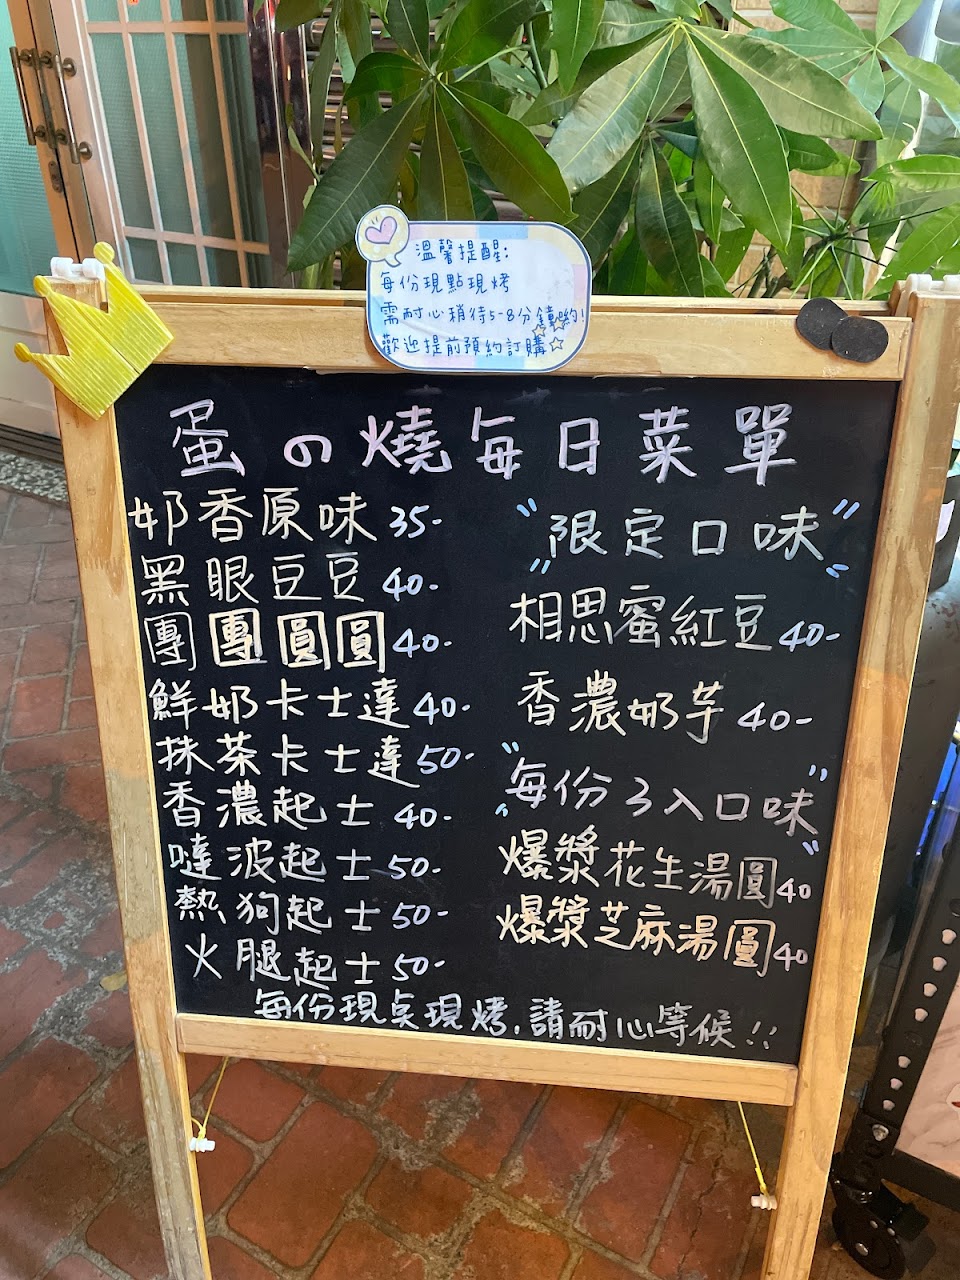 溫馨提醒:
每份現點現烤
需耐心稍待5-8分鐘喲!
歡迎提前預約訂購
蛋の燒每日菜單
奶香原味35-
黑眼豆豆40-
團團圓圓40-
鮮奶卡士達40-
抹茶卡士達50-
香濃起士40-
噠波起士50-
熱狗起士50-
火腿起士50-
"限定口味"
相思蜜紅豆40-
香濃奶芋40-
"每份3入口味"
爆漿花生湯圓40
爆漿芝麻湯圓40
每份現桌現烤.請耐心等候!!